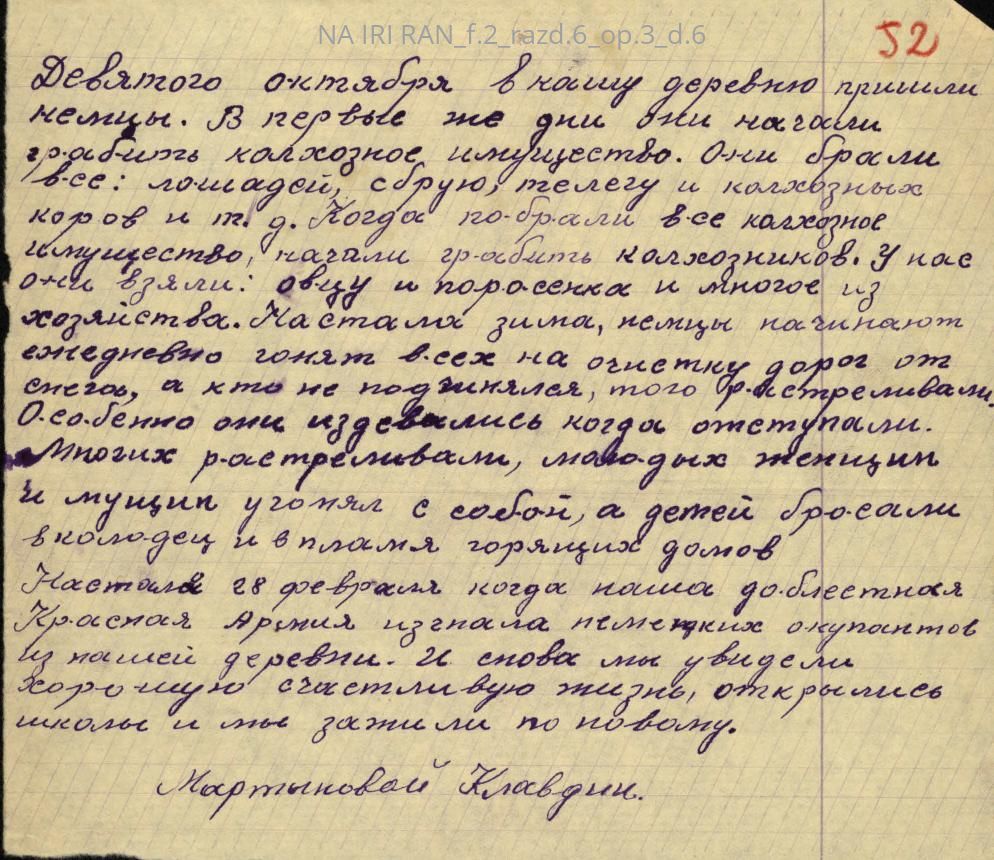 NA IRI RAN_f.2_razd.6_op.3_d.6
52
Девятого октября в нашу деревню пришли
немцы. В первые же дни они начали
грабить колхозное имущество. Они брали
все: лошадей, сбрую, телегу и колхозных
коров и т. д. Когда побрали все колхозное
имущество, начали грабить колхозников. У нас
они взяли: овцу и поросенка и многое из
хозяйства. Настала зима, немцы начинают
ежедневно гонят всех на очистку дорог от
снега, а кто не подчинялся, того растреливали.
Особенно они издевались когда отступали.
Многих растреливали, молодых женщин
и мущин угонял с собой, а детей бросали
в колодец и в пламя горящих домов
Настала 28 февраля когда наша доблестная
Красная Армия изгнала немецких окупантов
из нашей деревни. И снова мы увидели
хорошую счастливую жизнь, открылись
школы и мы зажили по новому.
Мартыновой Клавдии.